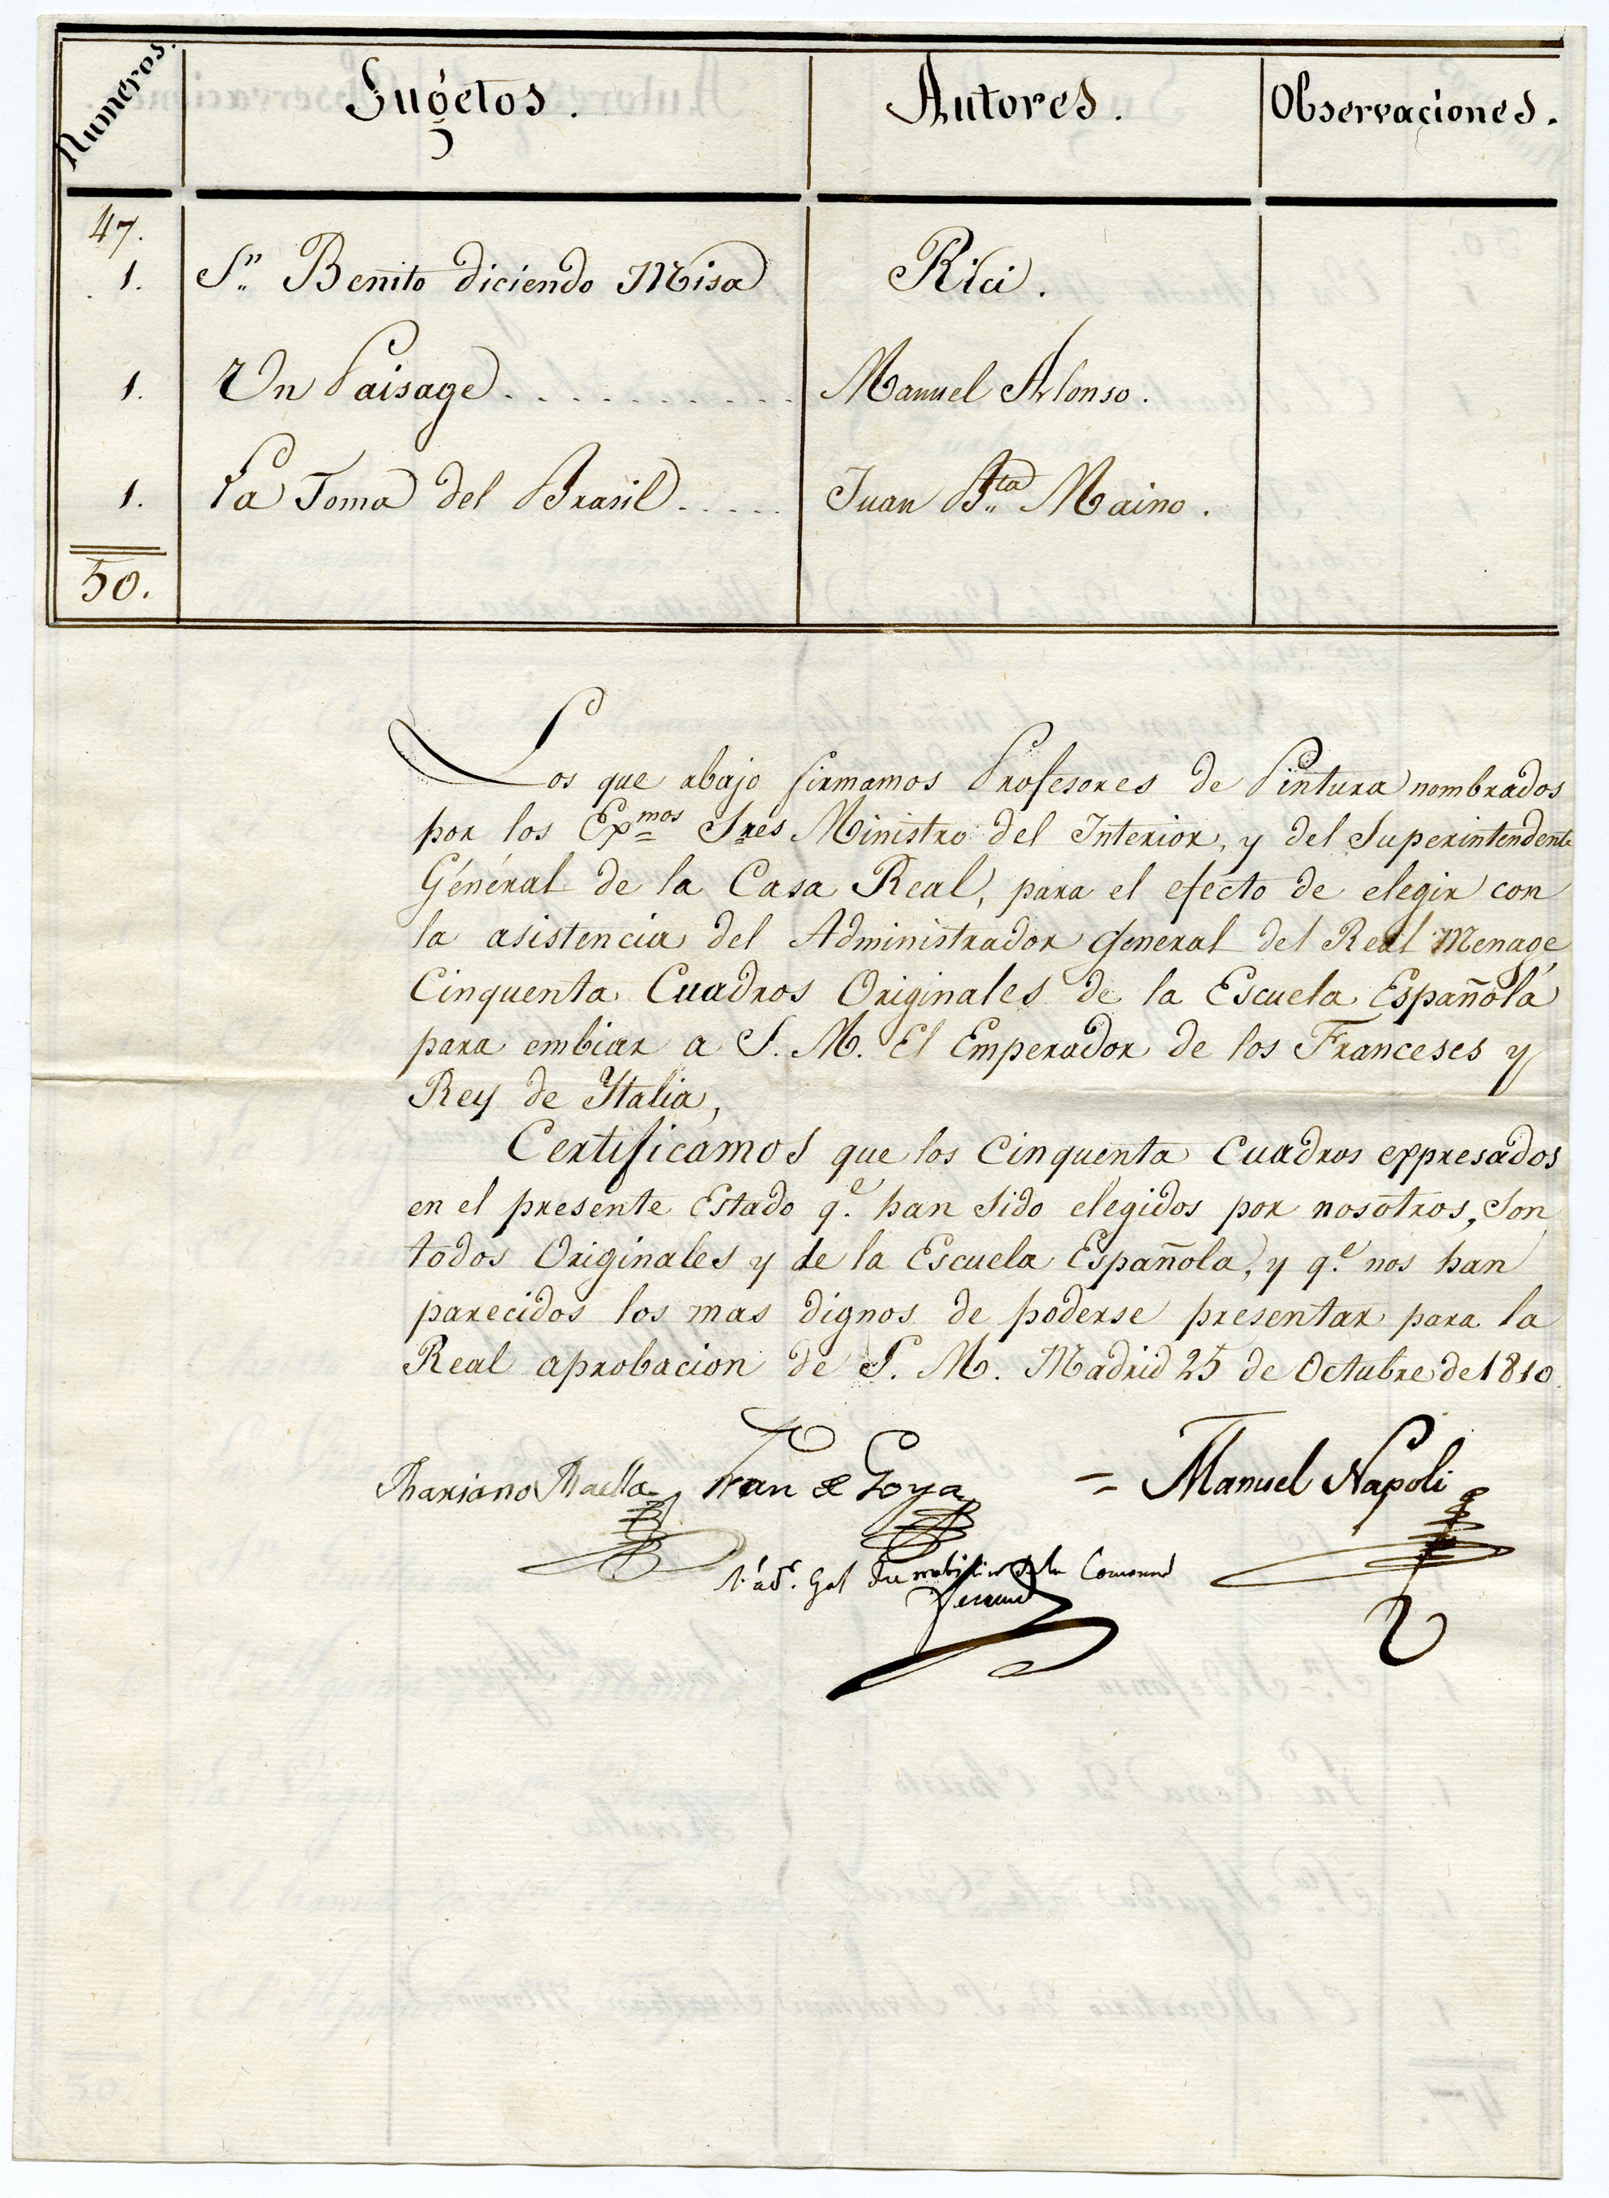 Numeros. Sugetos. Autores. Observaciones.
47.
1. Sn. Benito diciendo Misa Rici.
1. Un Paisage . . . . . . . . . . . Manuel Alonso.
1. La Toma del Brasil . . . . . Juan Bta. Maino.
50.
Los que abajo firmamos Profesores de Pintura nombrados
por los Exmos Sres Ministro del Interior, y del Superintendente
Général de la Casa Real, para el efecto de elegir con
la asistencia del Administrador General del Real Menage,
Cinquenta Cuadros Originales de la Escuela Española
para embiar a S. M. El Emperador de los Franceses y
Rey de Ytalia,
Certificamos que los Cinquenta Cuadros expresados
en el presente Estado qe. han sido elegidos por nosotros, son
todos Originales y de la Escuela Española, y qe. nos han
parecidos los mas dignos de poderse presentar para la
Real aprobacion de S. M. Madrid 25 de Octubre de 1810.
Mariano Maella Fran de Goya = Manuel Napoli
l'adr. Gal du mobilier de la Couronne